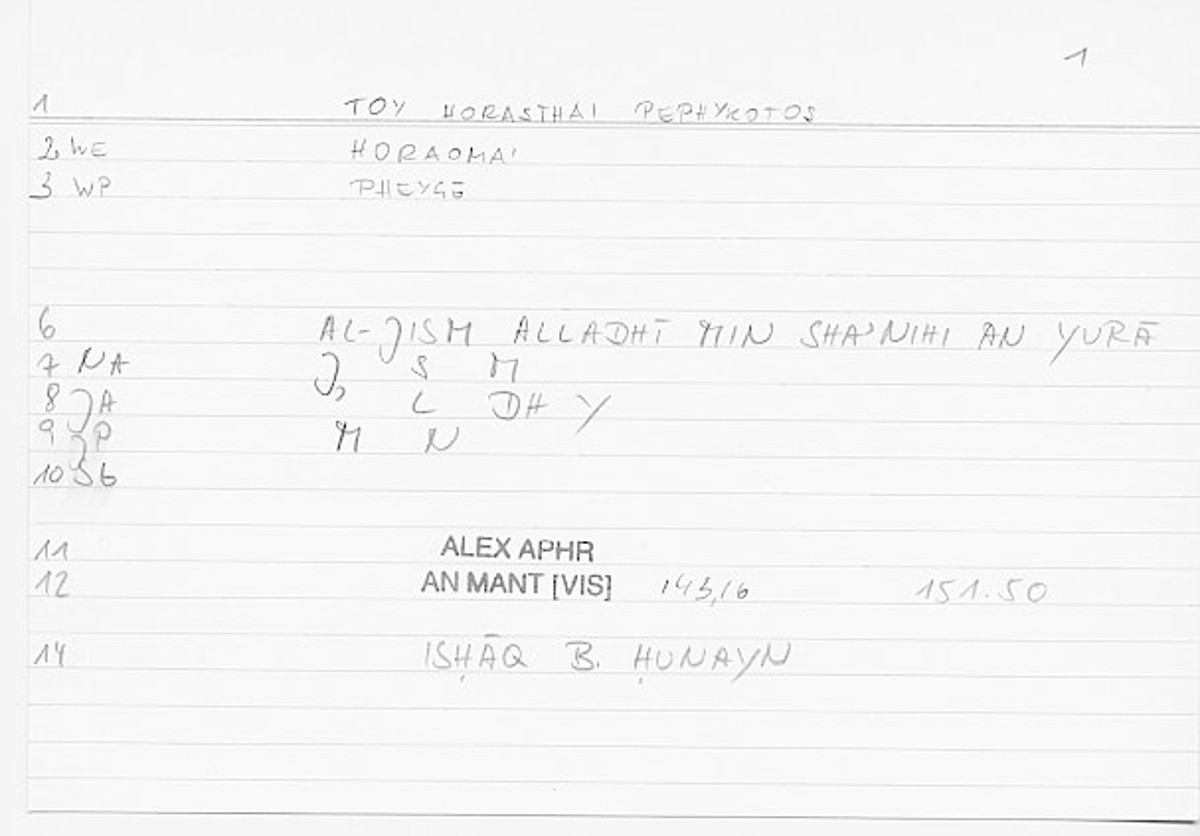 1
1 TOY HORASTHAI PEPHYKOTOS
2 WE HORAOMAI
3 WP
6 AL-JISM ALLADHĪ MIN SHA'NIHI AN YURĀ
7 NA J S M
8 JA L DH Y
9 JP M N
10 Sb
11 ALEX APHR
12 AN MANT [VIS] 143,16 151.50
14 ISḤĀQ B. ḤUNAYN